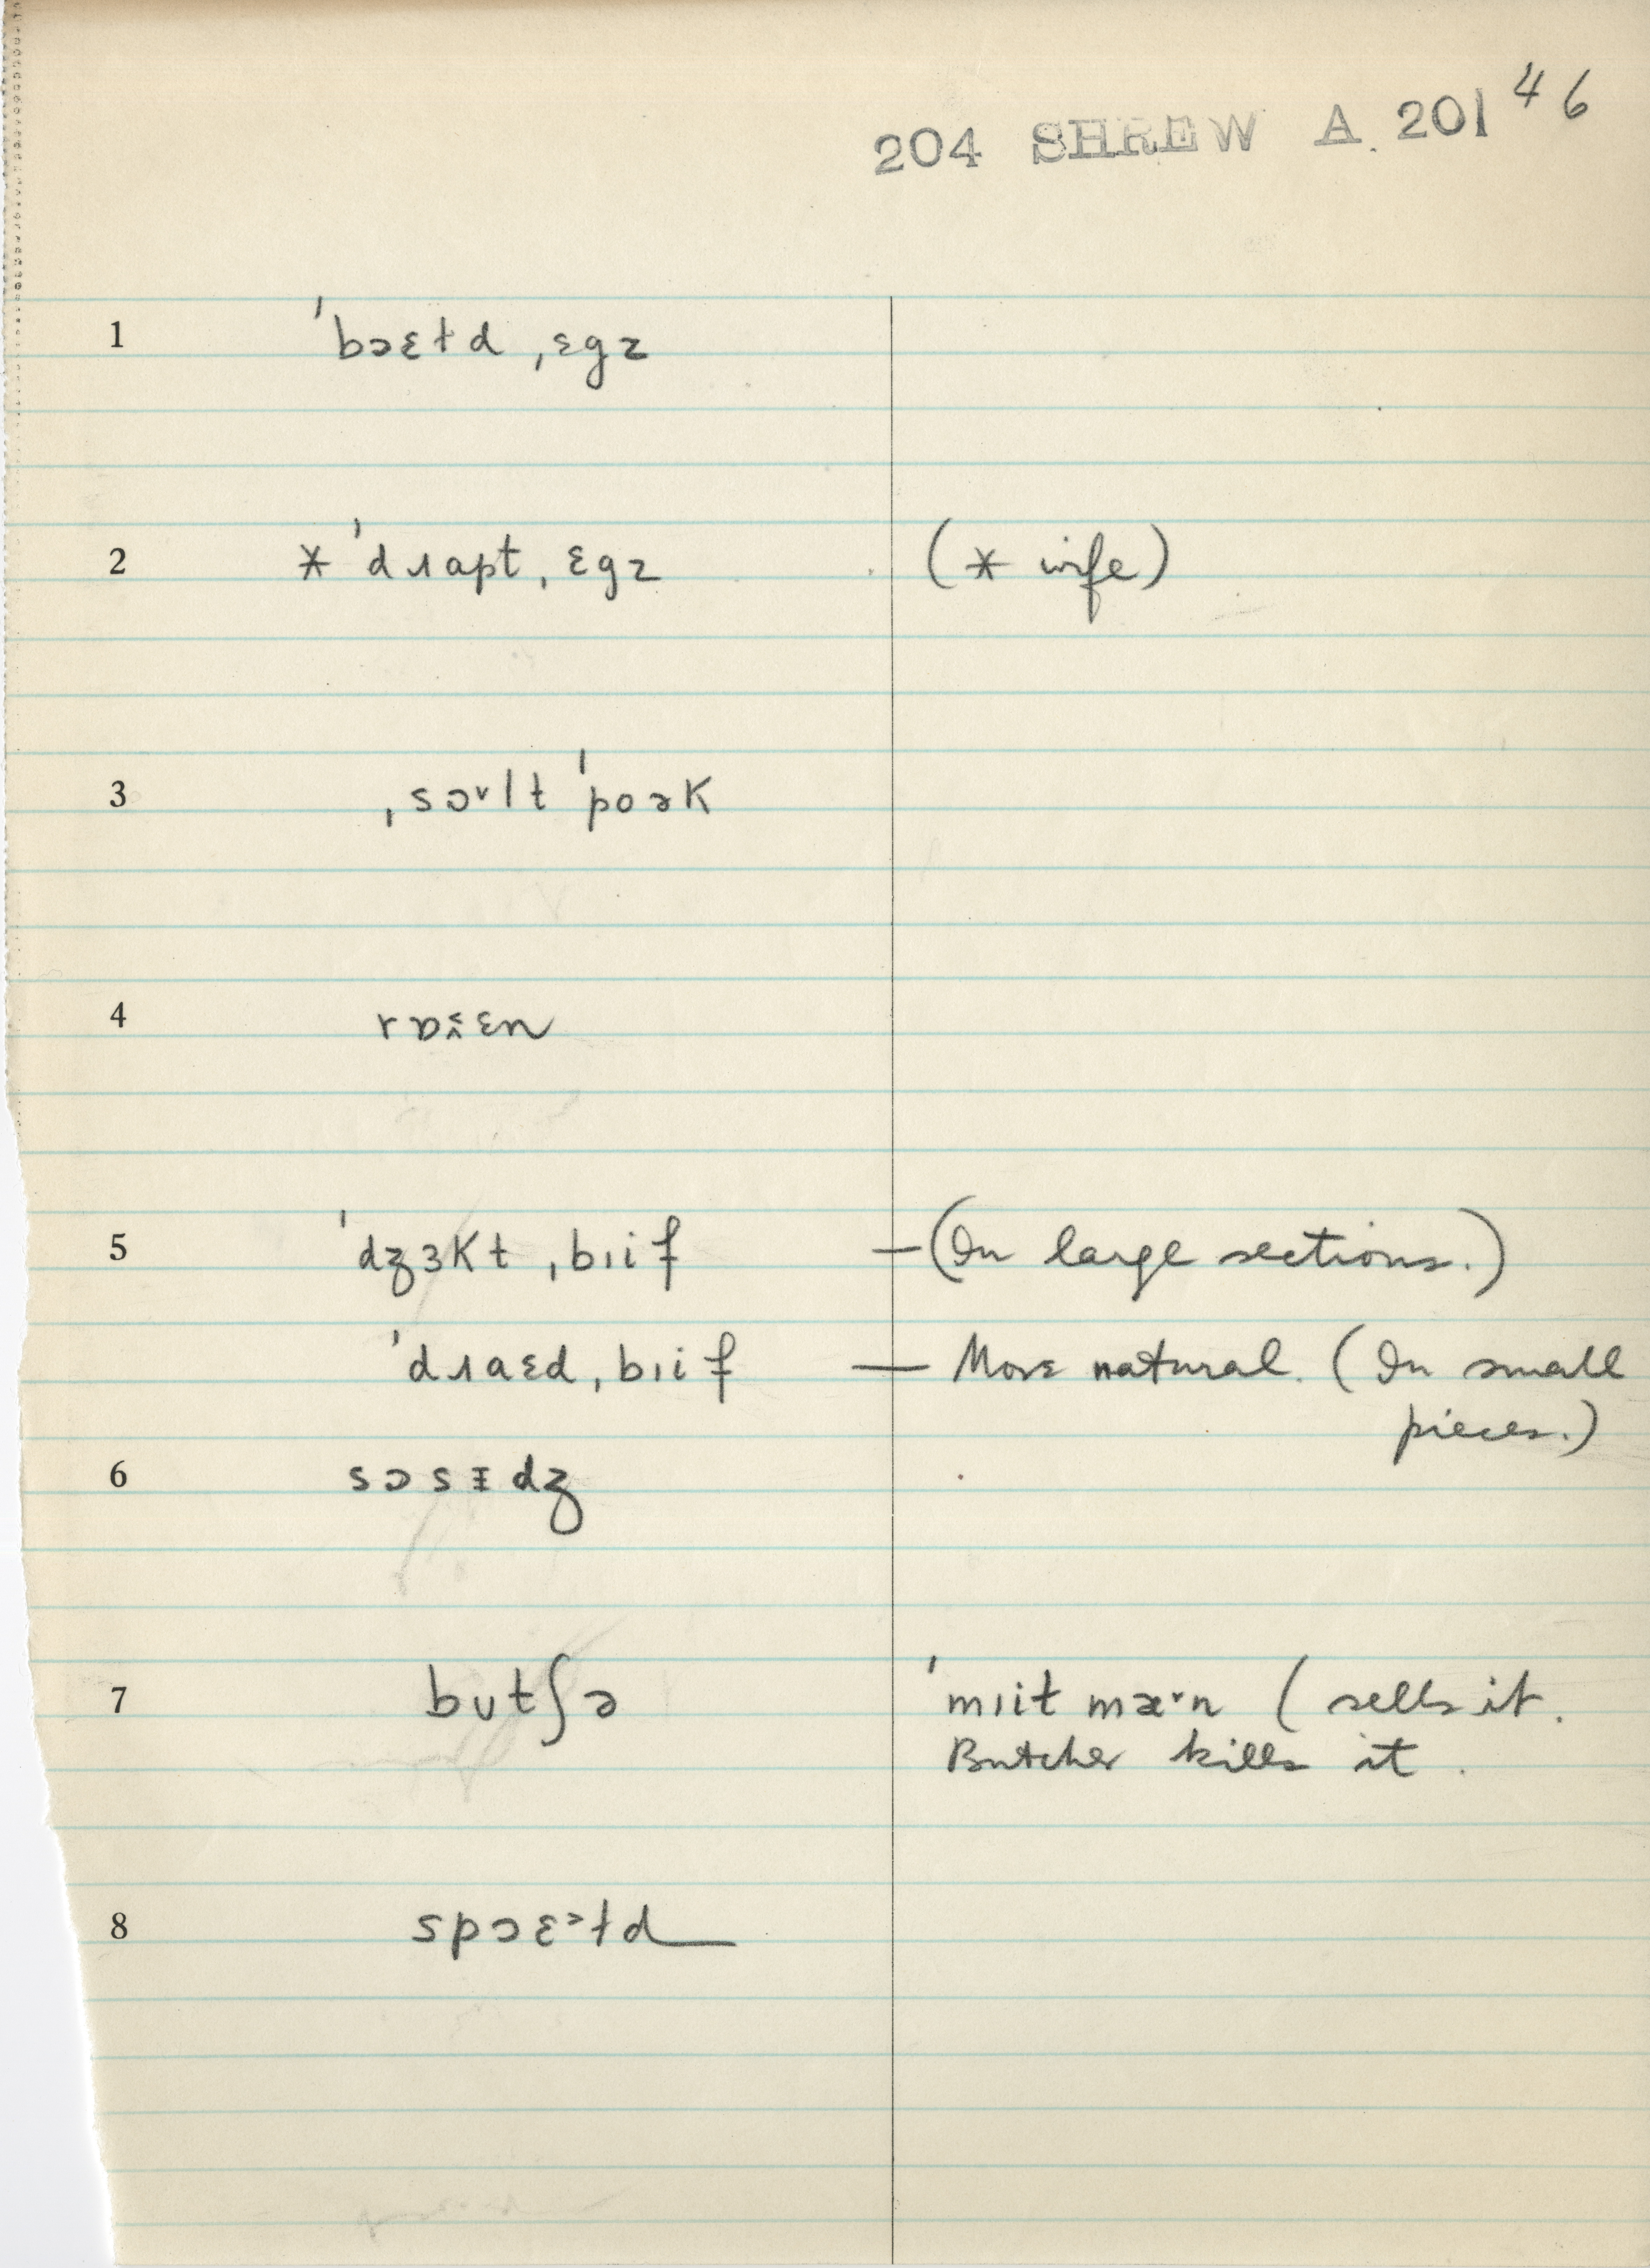 204 SHREW A. 201 46
1 ˈbɔɛɫd ˌɛgz
2 * ˈdɹapt ˌɛgz (* wife)
3 ˌsɔ˅lt ˈpoək
4 rɒɪ̯̆ɛn
5 ˈdʒɜkt ˌbɪif —(In large sections.)
ˈdɹaɛd ˌbɪif — More natural. (In small
pieces.)
6 sɔsɪdʒ
7 butʃə ˈmɪit mæ˅n (sells it.
Butcher kills it.
8 spɔɛ˃ɫd